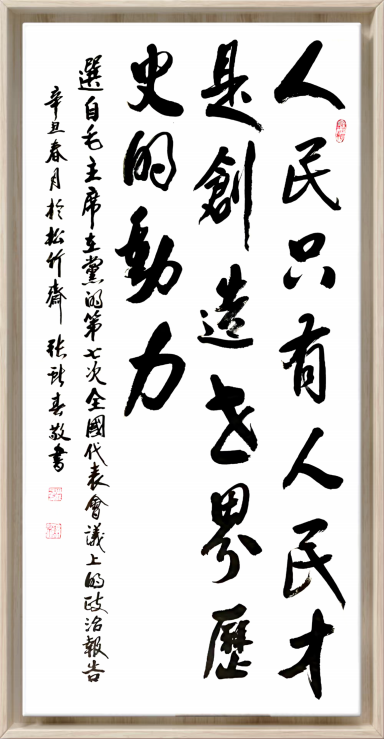 人民只有人民才
是創造世界歷
史的動力
選自毛主席在黨的第七次全國代表會議上的政治報告
辛丑春月於松竹齋 張春敬書